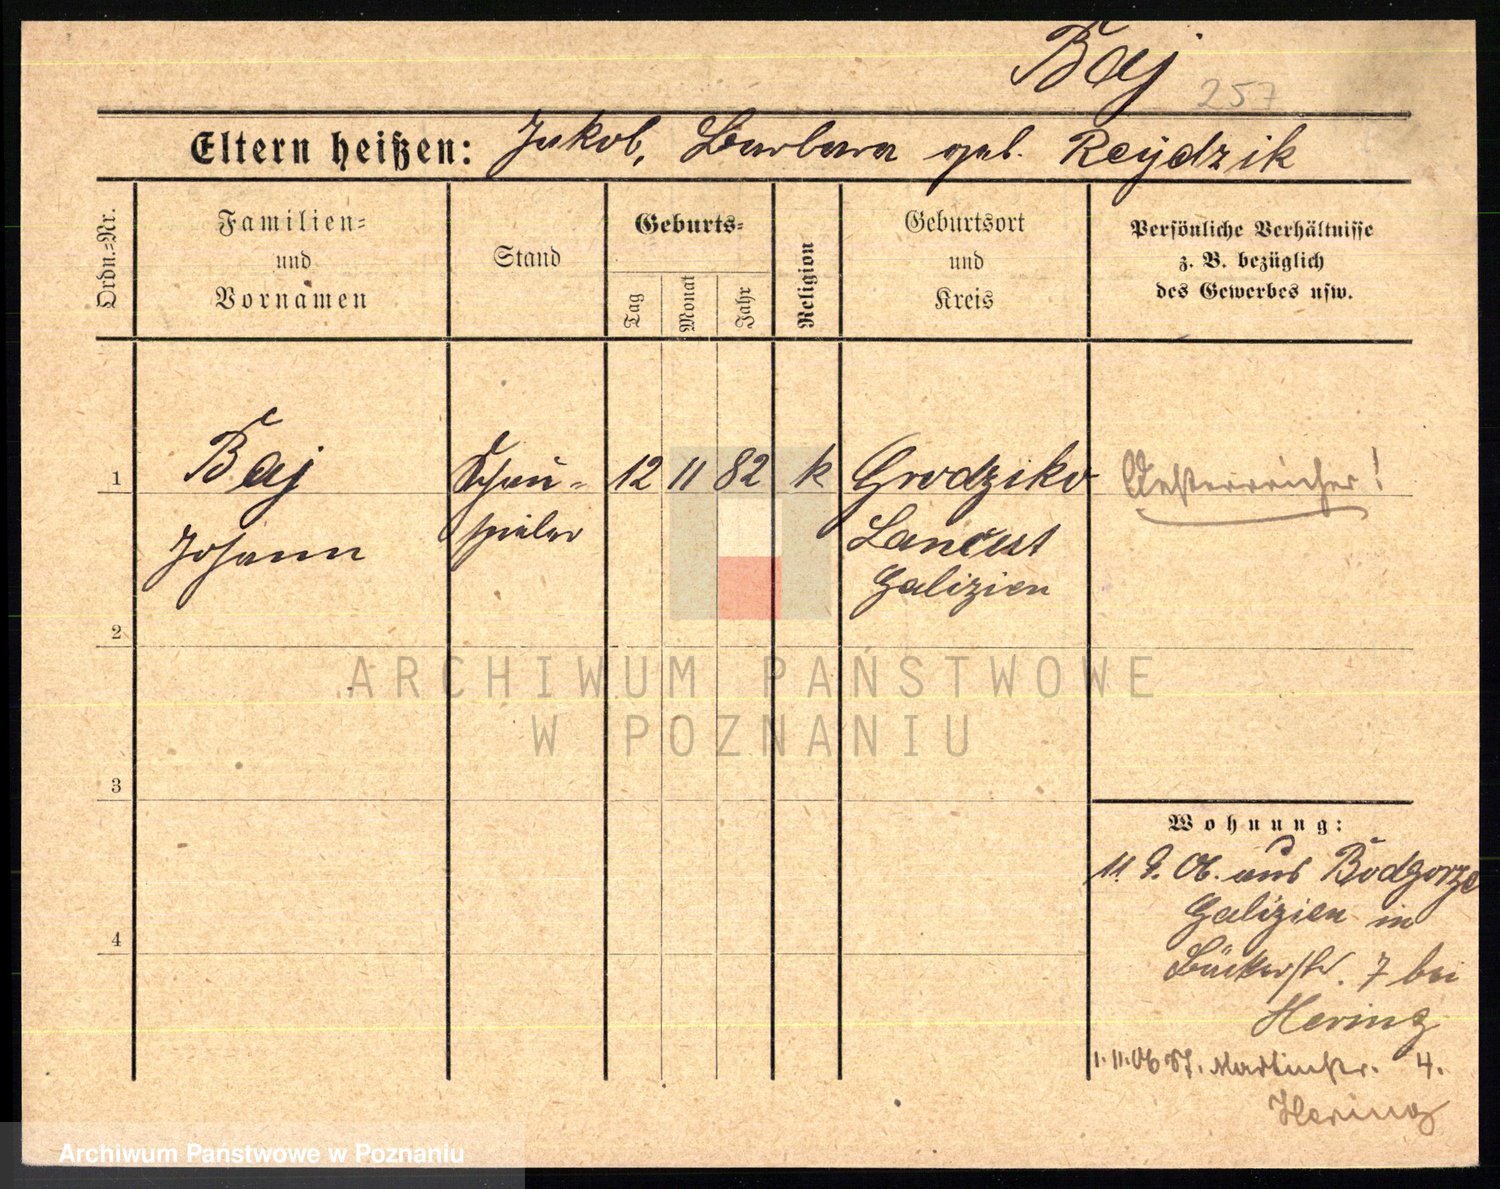 Baj
257
Eltern heißen: Jakob, Barbara geb. Reydzik
Ordn.=Nr.
Familien=
und
Vornamen
Stand
Geburts=
Tag
Monat
Jahr
Religion
Geburtsort
und
Kreis
Persönliche Verhältnisse
z. B. bezüglich
des Gewerbes usw.
1
Baj
Johann
Schau-
spieler
12 11 82 k
Grodzisko
Lancut
Galizien
Oesterreicher!
2
3
4
Wohnung:
11. 9. 06. aus Bodgorze
Galizien in
Bäckerstr. 7 bei
Hering
1. 11. 06 St. Martinstr. 4.
Hering
ARCHIWUM PAŃSTWOWE
W POZNANIU
Archiwum Państwowe w Poznaniu